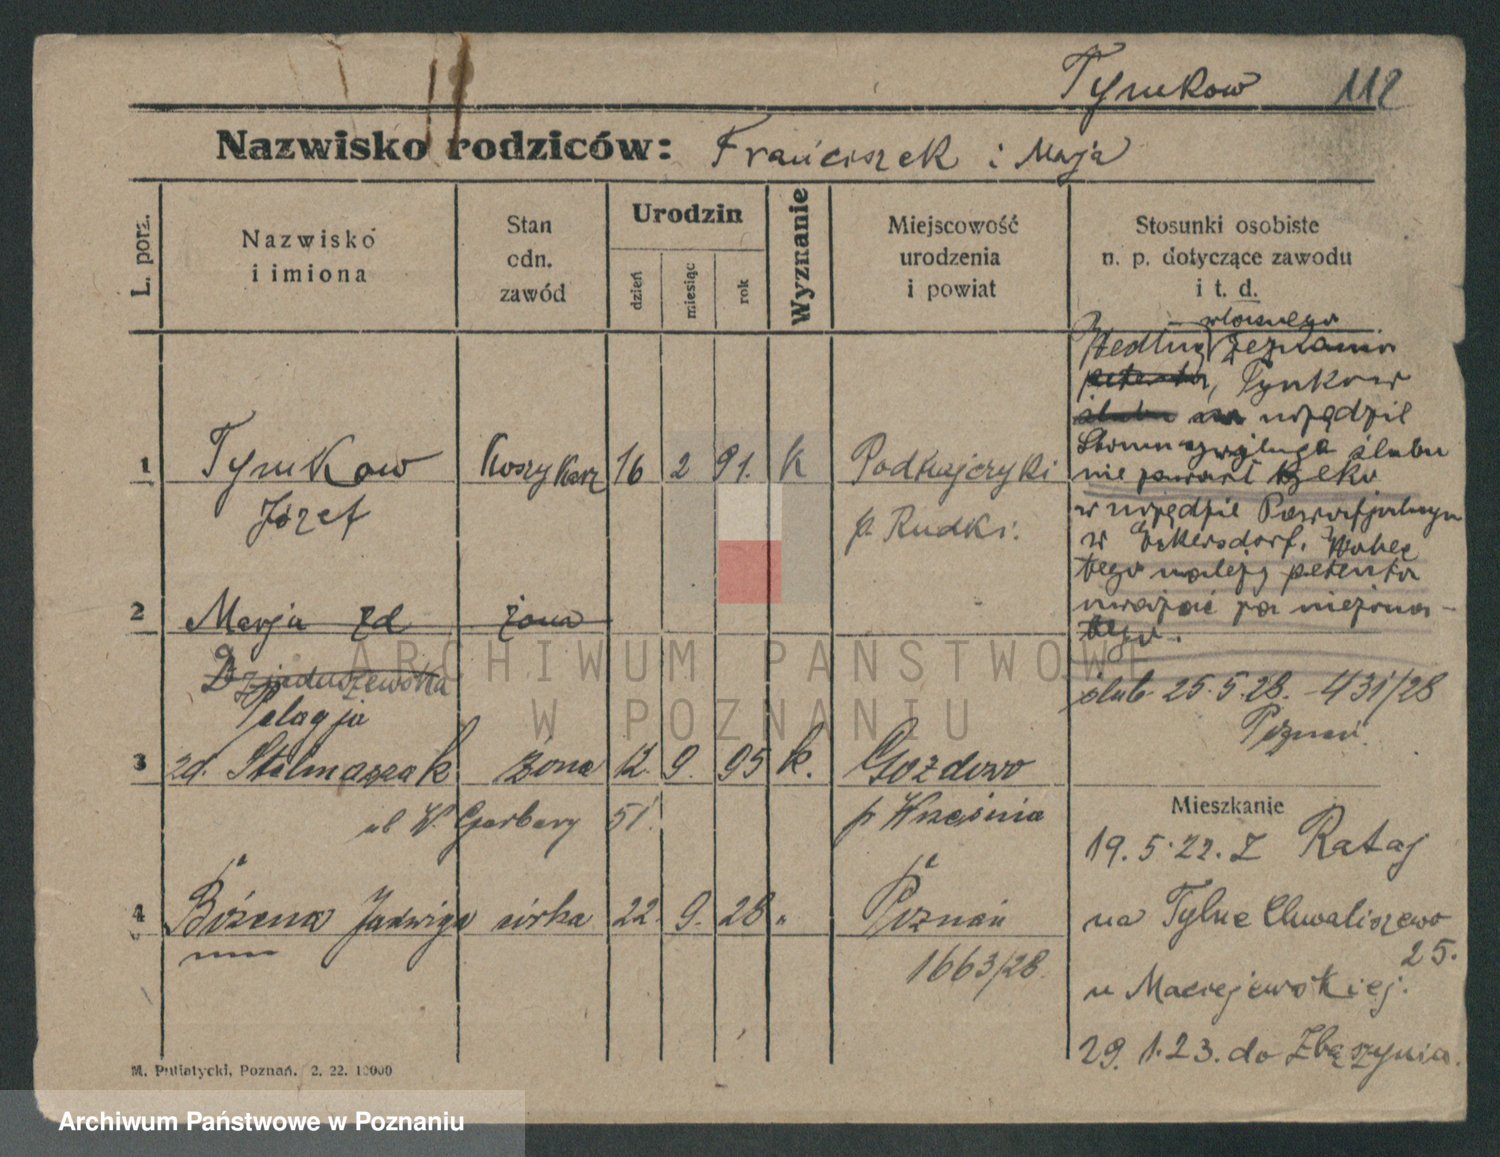 Tymkow 112
Nazwisko rodziców: Franciszek i Marja
L. porz.
Nazwisko
i imiona
Stan
odn.
zawód
Urodzin
dzień
miesiąc
rok
Wyznanie
Miejscowość
urodzenia
i powiat
Stosunki osobiste
n. p. dotyczące zawodu
i t. d.
1 Tymkow Koszykarz 16 2 91. K Podhajczyki
Józef p. Rudki.
2 Marja zd żona
Dziaduszewska
Pelagja
3 zd. Stelmaszak żona 12. 9. 95 k. Gozdowo
ul W. Garbary 51. p Września
4 Bożena Jadwiga córka 22. 9. 28 " Poznań
1663/28.
własnego
Według zeznania
petenta, Tymkow
ślubu w urzędzie
Stanu cywilnego ślubu
nie zawarł tylko
w urzędzie Parafjalnym
w Eckersdorf. Wobec
tego należy petenta
uważać za nieżona-
tego.
ślub 25. 5. 28. - 431/28
Poznań.
Mieszkanie
19. 5. 22. z Rataj
na Tylne Chwaliszewo
25.
u Maciejewskiej.
29. 1. 23. do Zbąszynia.
M. Putiatycki, Poznań. 2. 22. 10000
ARCHIWUM PAŃSTWOWE
W POZNANIU
Archiwum Państwowe w Poznaniu